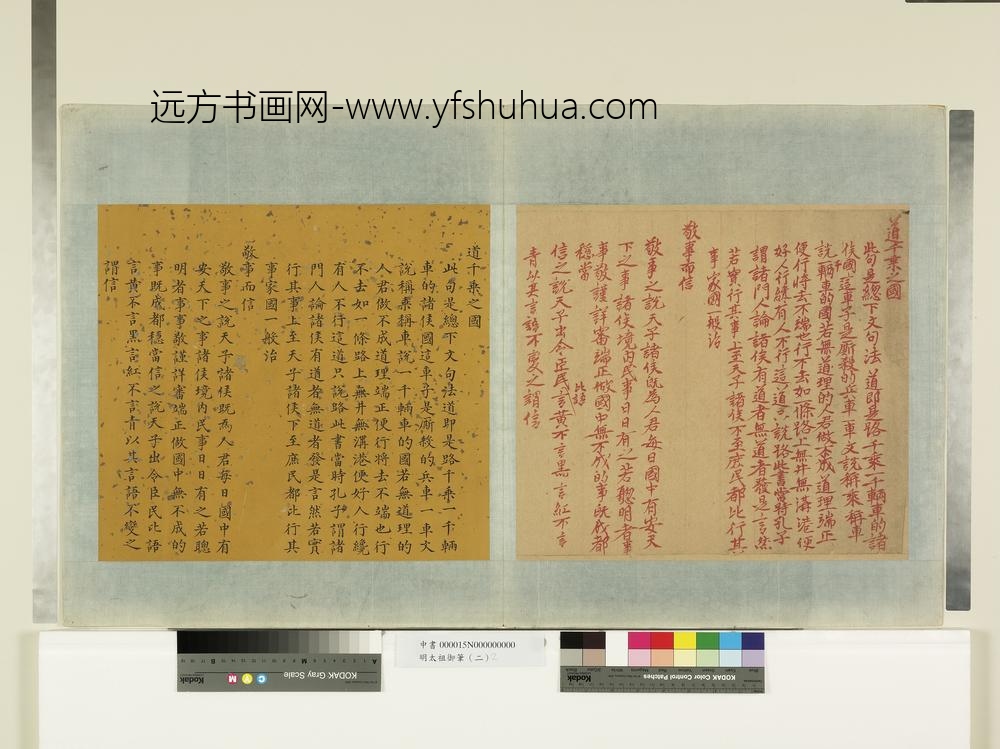 远方书画网-www.yfshuhua.com
道千乘之國
此句是總下文句法道即是路千乘一千輛車的諸
侯國這車子是廝殺的兵車一車文說稱乘稱車
說輛車的國若無道理的人若做不成道理端正
便行將去不端也行不去如一條路上無井無溝港便
好人行纔有人不行這道只說路此書當時孔子
謂諸門人論諸侯有道者無道者發是言然
若實行其事上至天子諸侯下至庶民都比行其
事家國一般治
敬事而信
敬事之說天子諸侯既為人君每日國中有安天
下之事諸侯境內民事日日有之若聰明者事
事敬謹詳審端正做國中無不成的事既成都
穩當
信之說天子出令臣民言黃不言黑言紅不言
比語
青以其言語不變之謂信
道千乘之國
此句是總下文句法道即是路千乘一千輛
車的諸侯國這車子是廝殺的兵車一車文
說稱乘稱車說一千輛車的國若無道理的
人君做不成道理端正便行將去不端也行
不去如一條路上無井無溝港便好人行纔
有人不行這道只說路此書當時孔子謂諸
門人論諸侯有道者無道者發是言然若實
行其事上至天子諸侯下至庶民都比行其
事家國一般治
敬事而信
敬事之說天子諸侯既為人君每日國中有
安天下之事諸侯境內民事日日有之若聰
明者事事敬謹詳審端正做國中無不成的
事既成都穩當信之說天子出令臣民比語
言黃不言黑言紅不言青以其言語不變之
謂信
中書 000015N000000000
明太祖御筆(二)2
KODAK Gray Scale
Kodak
C
Y
M
KODAK Color Control Patches
Kodak